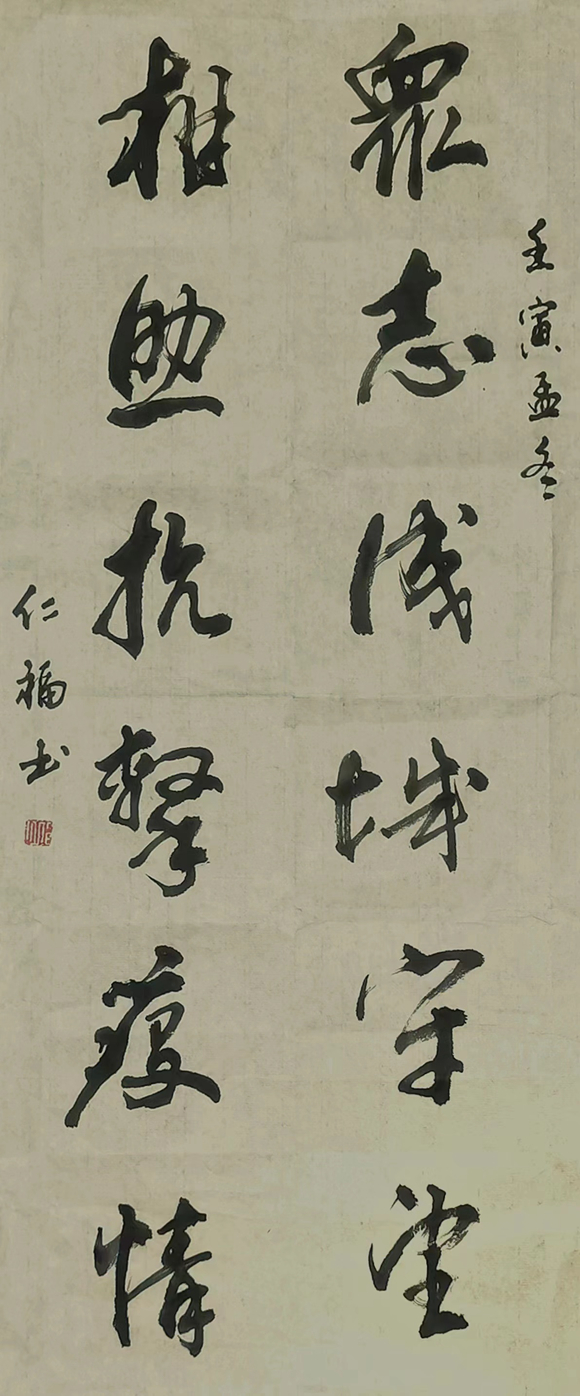 壬寅孟冬
眾志成城守望
相助抗擊疫情
仁福书